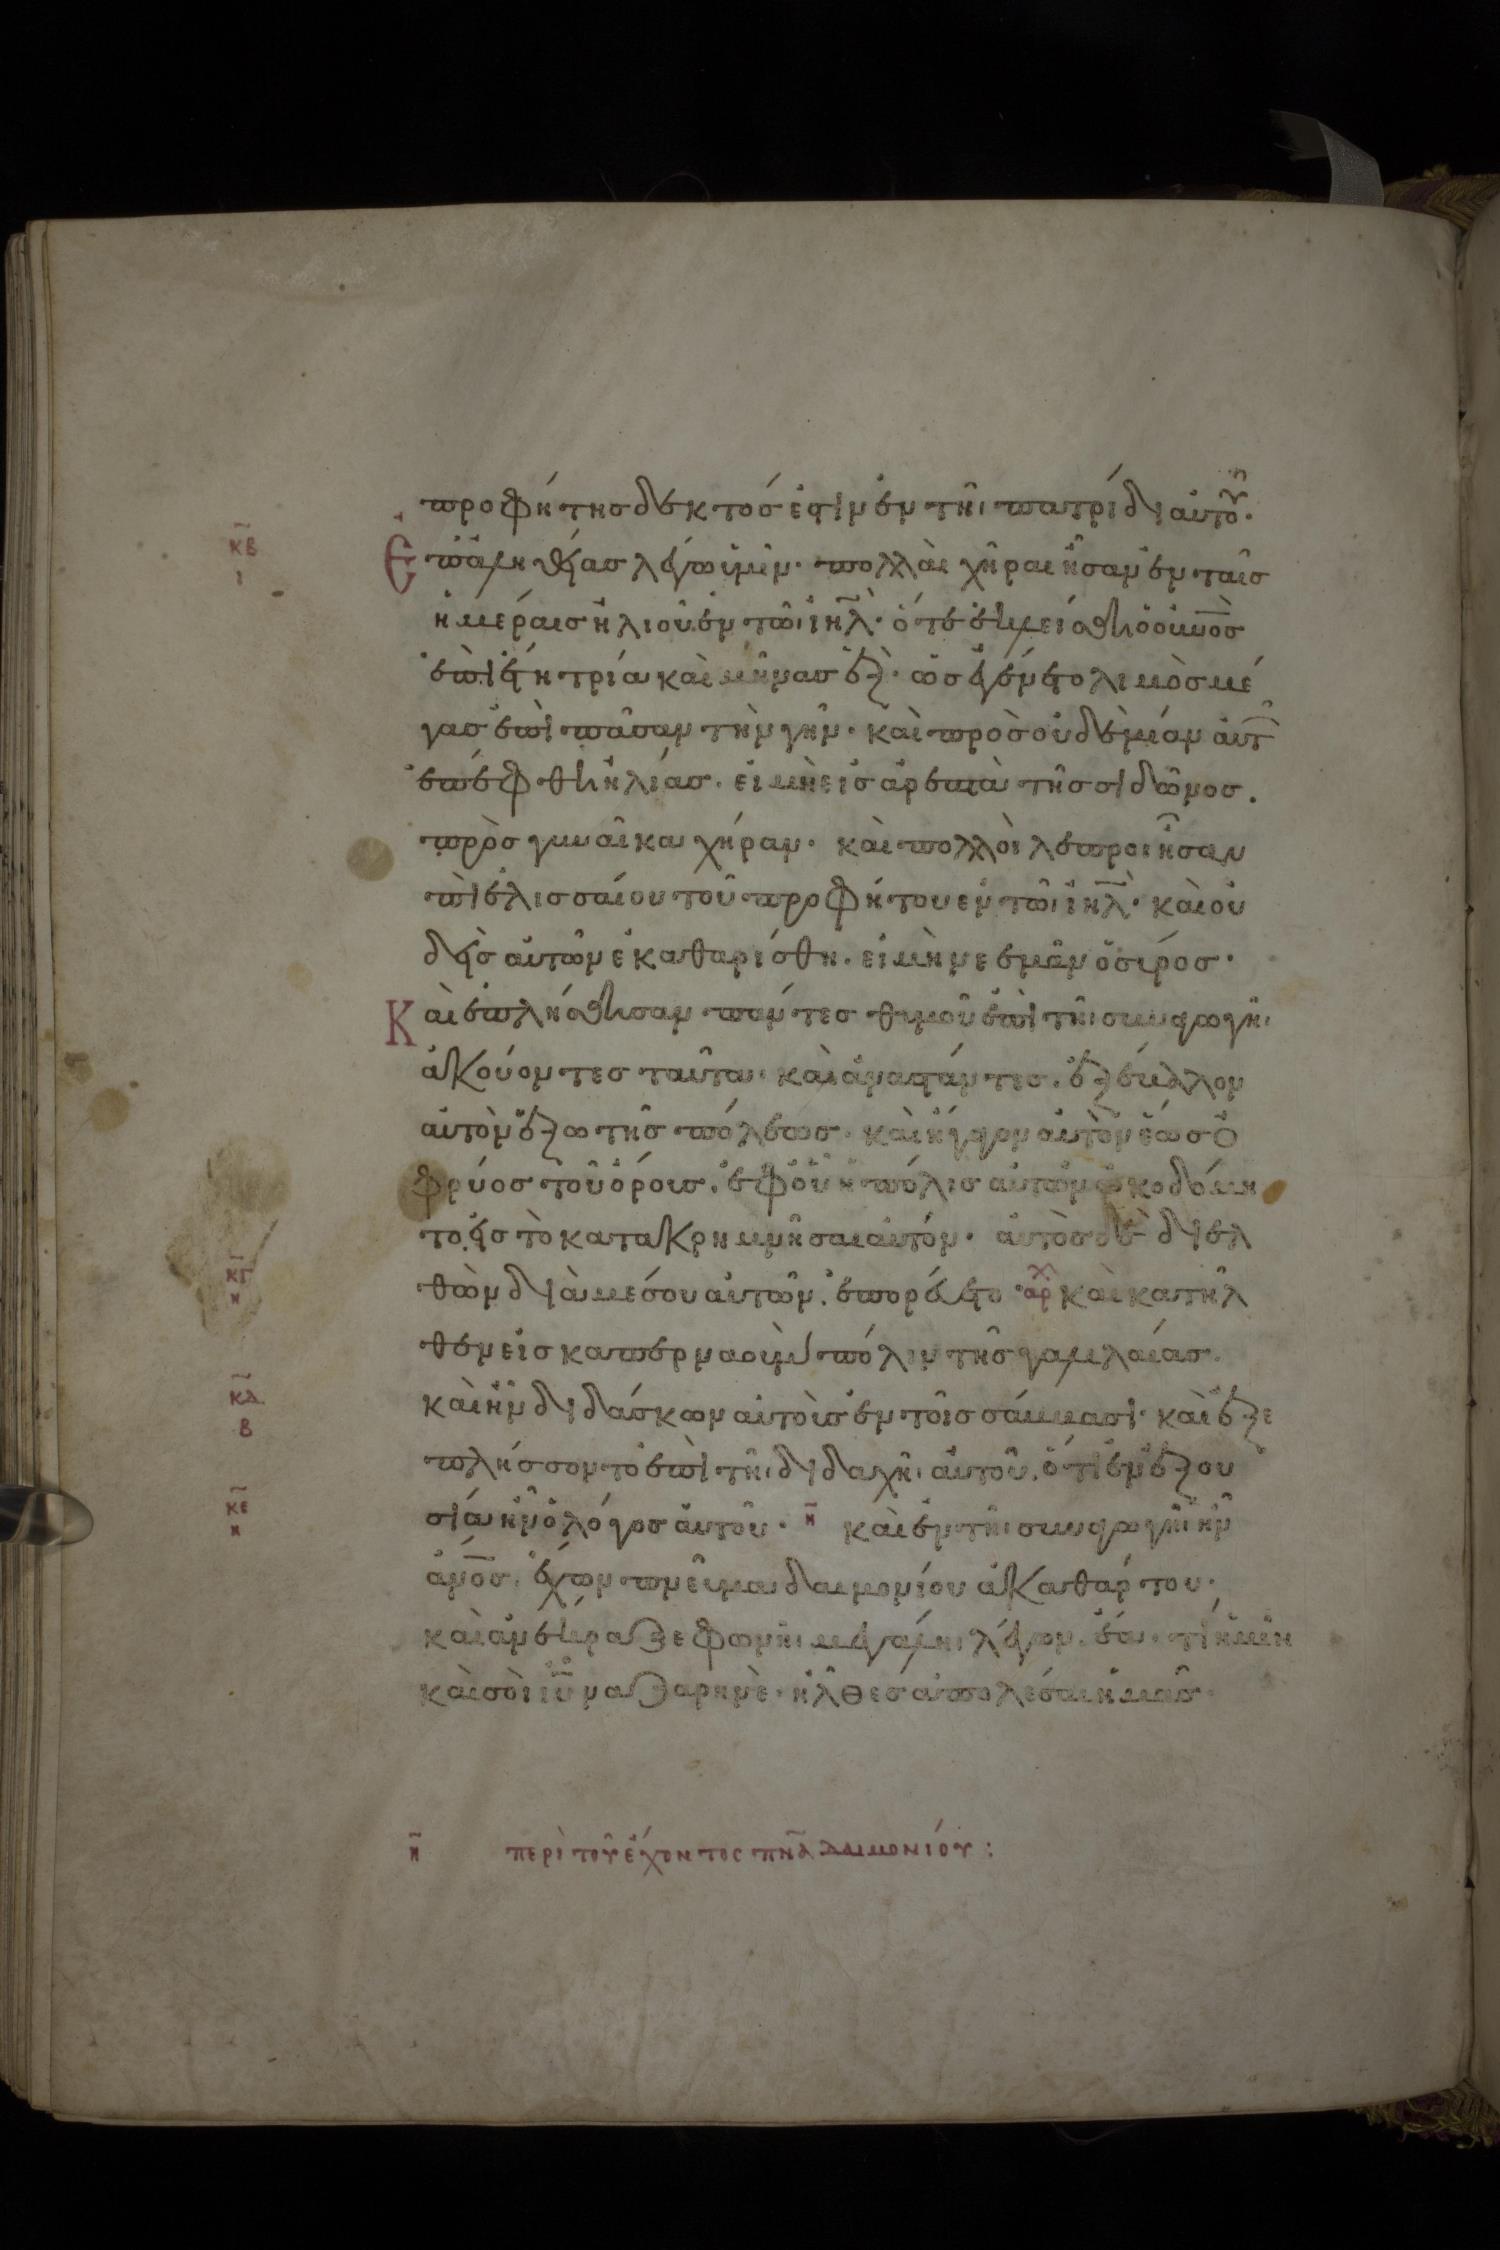 προφήτης δεκτός ἐστιν ἐν τῆι πατρίδι αὐτοῦ·
κβ
ι
Ἐπ ἀληθείας λέγω ὑμῖν· πολλαὶ χῆραι ἦσαν ἐν ταῖς
ἡμέραις ἠλιοὺ ἐν τῶι ιηλ· ὅτε ἐκλείσθη ὁ οὐνος
ἐπὶ ἔτη τρία καὶ μῆνας ἕξ· ὡς ἐγένετο λιμὸς μέ
γας ἐπὶ πᾶσαν τὴν γῆν· καὶ πρὸς οὐδεμίαν αὐτ
ἐπέμφθη ἠλίας. εἰ μὴ εἰς σάρεπτα τῆς σιδῶνος.
πρὸς γυναῖκα χήραν· καὶ πολλοὶ λεπροὶ ἦσαν
ἐπὶ ἐλισσαίου τοῦ προφήτου ἐν τῶι ιηλ· καὶ οὐ
δεὶς αὐτῶν ἐκαθαρίσθη. εἰ μὴ νεεμὰν ὁ σύρος·
Καὶ ἐπλήσθησαν πάντες θυμοῦ ἐπὶ τῆι συναγωγῆι
ἀκούοντες ταῦτα· καὶ ἀναστάντες. ἐξέβαλον
αὐτὸν ἔξω τῆς πόλεως· καὶ ἤγαγον αὐτὸν ἕως ὀ
φρύος τοῦ ὄρους. ἐφ οὗ ἡ πόλις αὐτῶν ὠκοδόμη
το. εἰς τὸ κατακρημνῆσαι αὐτόν· αὐτὸς δὲ διελ
κγ
η
θὼν διὰ μέσου αὐτῶν. ἐπορεύετο· αρχ καὶ κατῆλ
θεν εἰς καπερναοὺμ πόλιν τῆς γαλιλαίας.
κδ
β
καὶ ἦν διδάσκων αὐτοὺς ἐν τοῖς σάββασι· καὶ ἐξε
πλήσσοντο ἐπὶ τῆι διδαχῆι αὐτοῦ. ὅτι ἐν ἐξου
κε
η
σία ἦν ὁ λόγος αὐτοῦ· η καὶ ἐν τῆι συναγωγῆι ἦν
ἀνος. ἔχων πνεῦμα δαιμονίου ἀκαθάρτου·
καὶ ἀνέκραξε φωνῆι μεγάληι λέγων. ἔα. τί ἡμῖν
καὶ σοὶ ιυ ναζαρηνέ· ἦλθες ἀπολέσαι ἡμᾶς·
η περὶ τοῦ ἔχοντος πνα δαιμονίου: